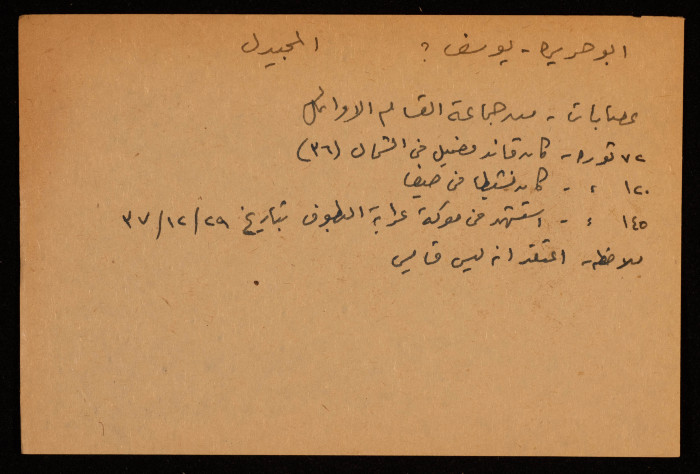 ابو حريره - يوسف ؟ المجيدل
عصابات - من جماعة القسام الاوائل
٧٢ ثوره - كان قائد فصيل في الشمال (٣٦)
١٢٠ ، - كان نشيطا في
١٤٥ ، - استشهد في معركة عرابة البطوف بتاريخ ٣٧/١٢/٢٩
ملاحظه - اعتقد انه ليس قسامي